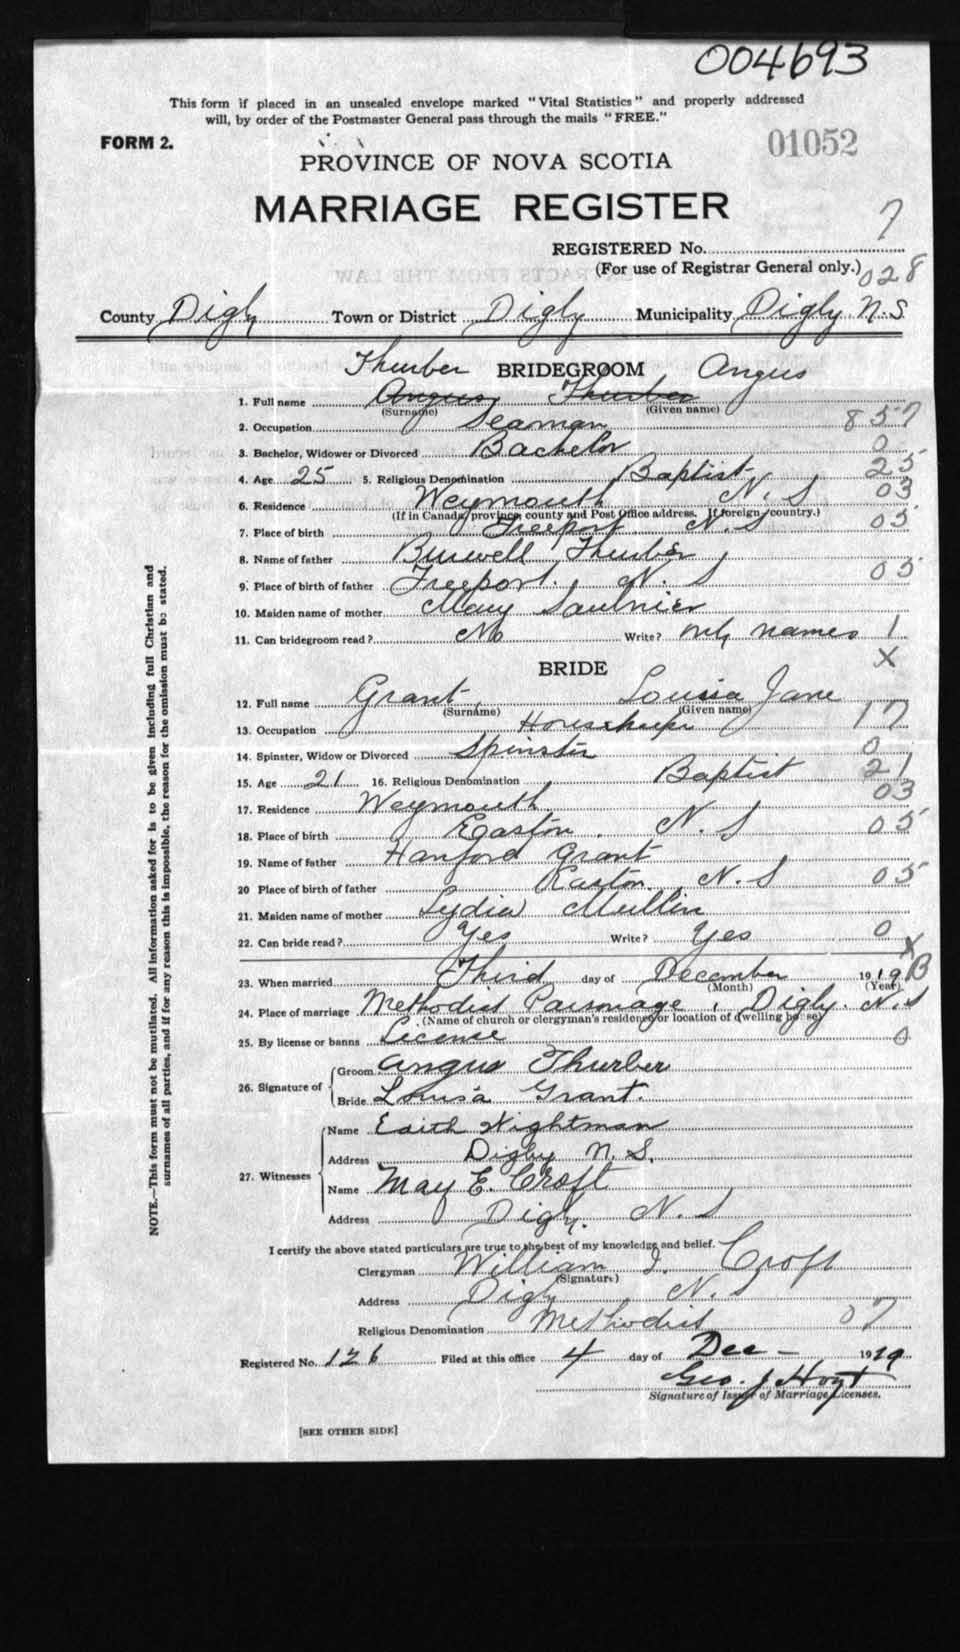 004693
This form if placed in an unsealed envelope marked "Vital Statistics" and properly addressed
will, by order of the Postmaster General pass through the mails "FREE."
FORM 2.
01052
PROVINCE OF NOVA SCOTIA
MARRIAGE REGISTER
REGISTERED No. 7
(For use of Registrar General only.) 028
County Digby Town or District Digby Municipality Digby N.S
Thurber BRIDEGROOM Angus
1. Full name Angus Thurber
(Surname) (Given name)
2. Occupation Seaman 857
3. Bachelor, Widower or Divorced Bachelor 0
4. Age 25 5. Religious Denomination Baptist 25
6. Residence Weymouth N. S 03
(If in Canada, province, county and Post Office address. If foreign, country.)
7. Place of birth Freeport N. S 05
8. Name of father Burwell Thurber
9. Place of birth of father Freeport, N. S 05
10. Maiden name of mother Mary Saulnier
11. Can bridegroom read? No Write? only names 1
X
BRIDE
12. Full name Grant, Louisa Jane
(Surname) (Given name)
13. Occupation Housekeeper 17
14. Spinster, Widow or Divorced Spinster 0
15. Age 21 16. Religious Denomination Baptist 21
17. Residence Weymouth 03
18. Place of birth Easton, N. S 05
19. Name of father Hanford Grant
20 Place of birth of father Easton, N. S 05
21. Maiden name of mother Lydia Mullin
22. Can bride read? Yes Write? Yes 0
X
23. When married Third day of December 1919 B
(Month) (Year)
24. Place of marriage Methodist Parsonage, Digby. N. S
(Name of church or clergyman's residence or location of dwelling house)
25. By license or banns License 0
26. Signature of
Groom Angus Thurber
Bride Louisa Grant.
27. Witnesses
Name Edith Wightman
Address Digby N. S.
Name May E. Croft
Address Digby. N. S
I certify the above stated particulars are true to the best of my knowledge and belief.
Clergyman William I. Croft
(Signature)
Address Digby N. S
Religious Denomination Methodist 07
Registered No. 126 Filed at this office 4 day of Dec - 1919
Geo. J Hoyt
Signature of Issuer of Marriage Licenses.
[SEE OTHER SIDE]
NOTE.—This form must not be mutilated. All information asked for is to be given including full Christian and
surnames of all parties, and if for any reason this is impossible, the reason for the omission must be stated.